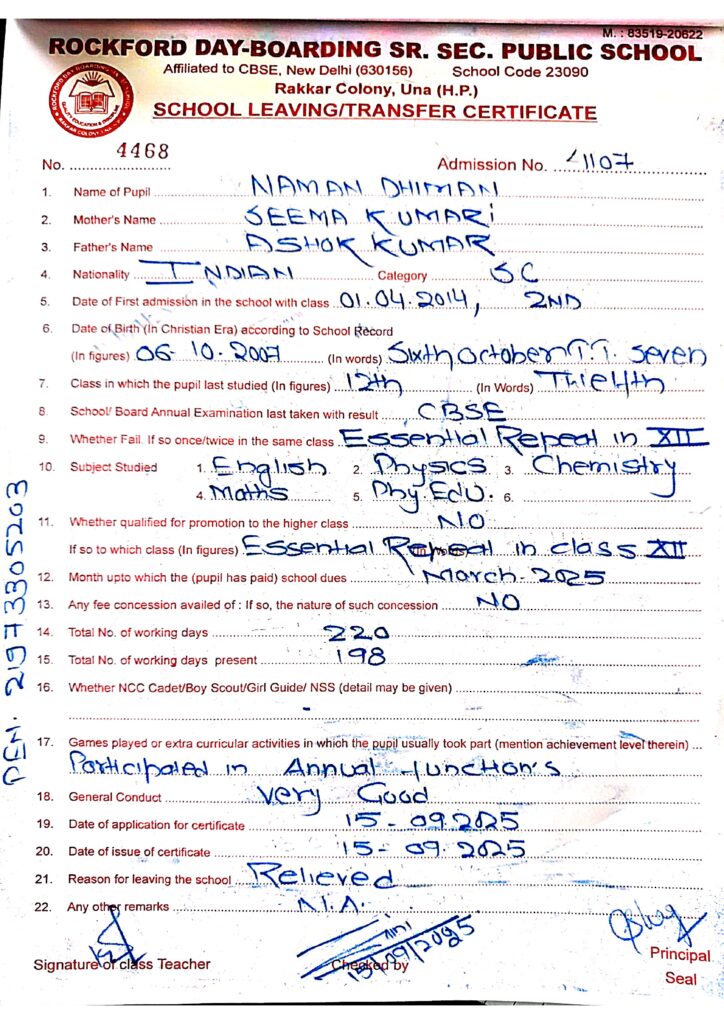 M. : 83519-20622
ROCKFORD DAY-BOARDING SR. SEC. PUBLIC SCHOOL
Affiliated to CBSE, New Delhi (630156) School Code 23090
Rakkar Colony, Una (H.P.)
SCHOOL LEAVING/TRANSFER CERTIFICATE
No. 4468 Admission No. 1107
1. Name of Pupil NAMAN DHIMAN
2. Mother's Name SEEMA KUMARI
3. Father's Name ASHOK KUMAR
4. Nationality INDIAN Category SC
5. Date of First admission in the school with class 01.04.2014, 2ND
6. Date of Birth (In Christian Era) according to School Record
(In figures) 06-10.2007 (In words) Sixth October T.T. Seven
7. Class in which the pupil last studied (In figures) 12th (In Words)
8. School/ Board Annual Examination last taken with result CBSE
9. Whether Fail. If so once/twice in the same class Essential Repeat in XII
10. Subject Studied 1. English 2. Physics 3. Chemistry
4. Maths 5. Phy.Edu. 6.
11. Whether qualified for promotion to the higher class NO
If so to which class (In figures) Essential Repeat in class XII
12. Month upto which the (pupil has paid) school dues March-2025
13. Any fee concession availed of : If so, the nature of such concession NO
14. Total No. of working days 220
15. Total No. of working days present 198
16. Whether NCC Cadet/Boy Scout/Girl Guide/ NSS (detail may be given)
17. Games played or extra curricular activities in which the pupil usually took part (mention achievement level therein)
Participated in Annual function's
18. General Conduct Very Good
19. Date of application for certificate 15-09.2025
20. Date of issue of certificate 15-09.2025
21. Reason for leaving the school Relieved
22. Any other remarks N.A.
15/09/2025
Signature of class Teacher Checked by Principal
Seal
PEN. 21973305203